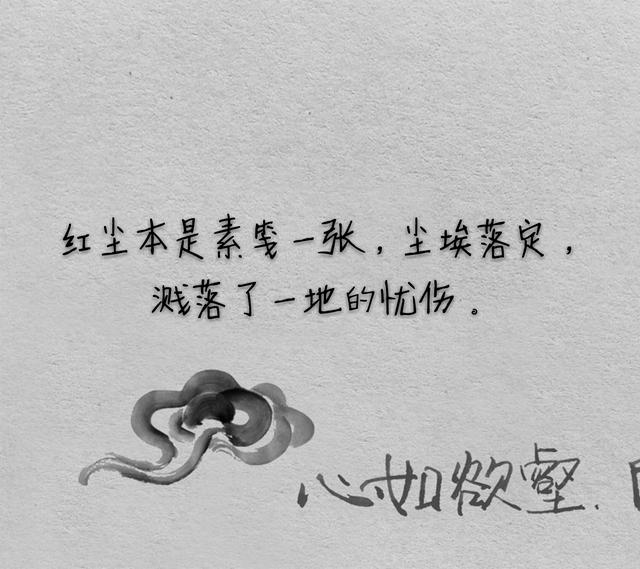 红尘本是素曵一张，尘埃落定，
溅落了一地的忧伤。
心如欲壑.